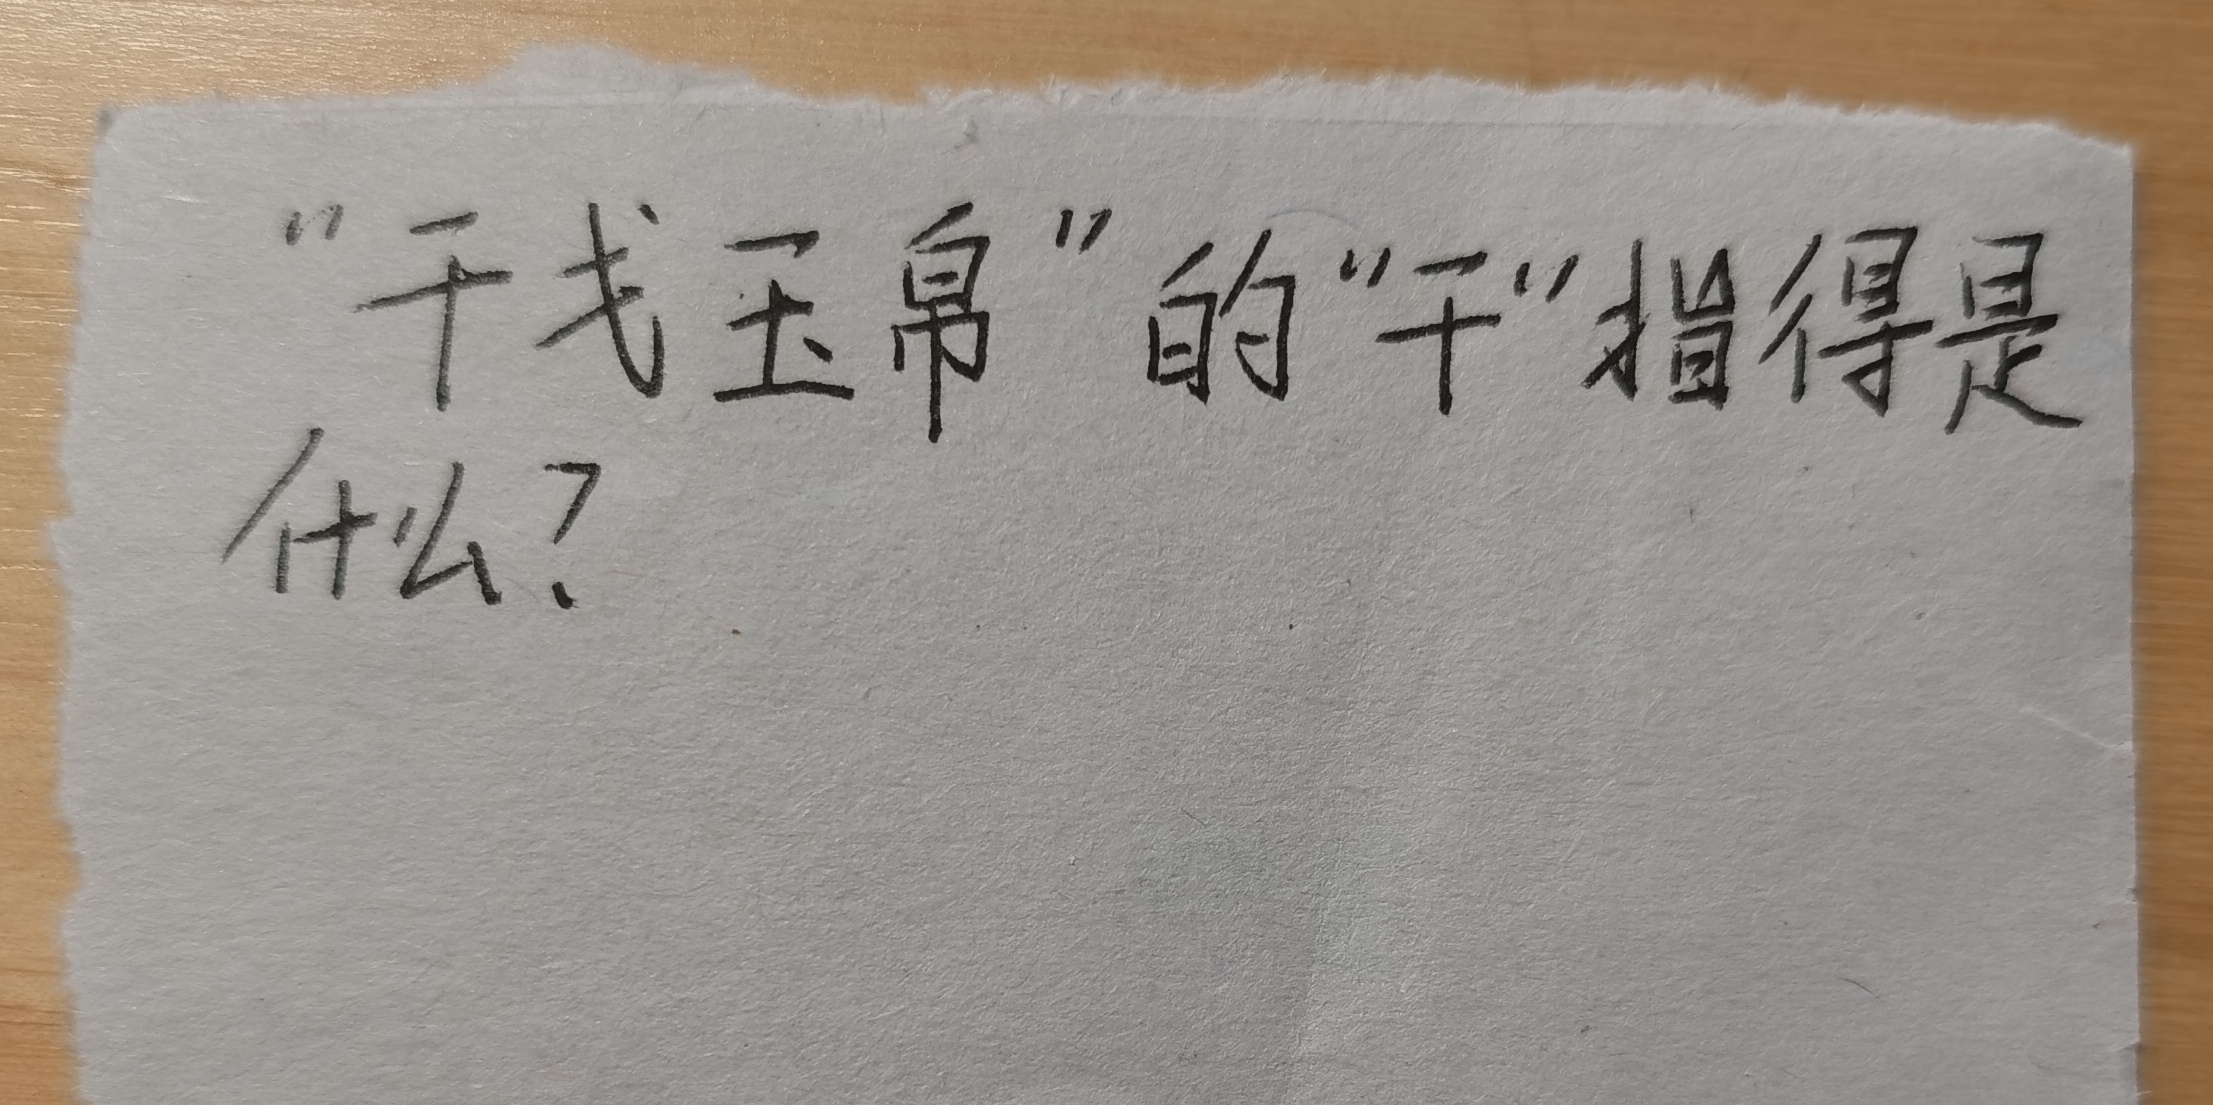 “干戈玉帛”的“干”指得是
什么?